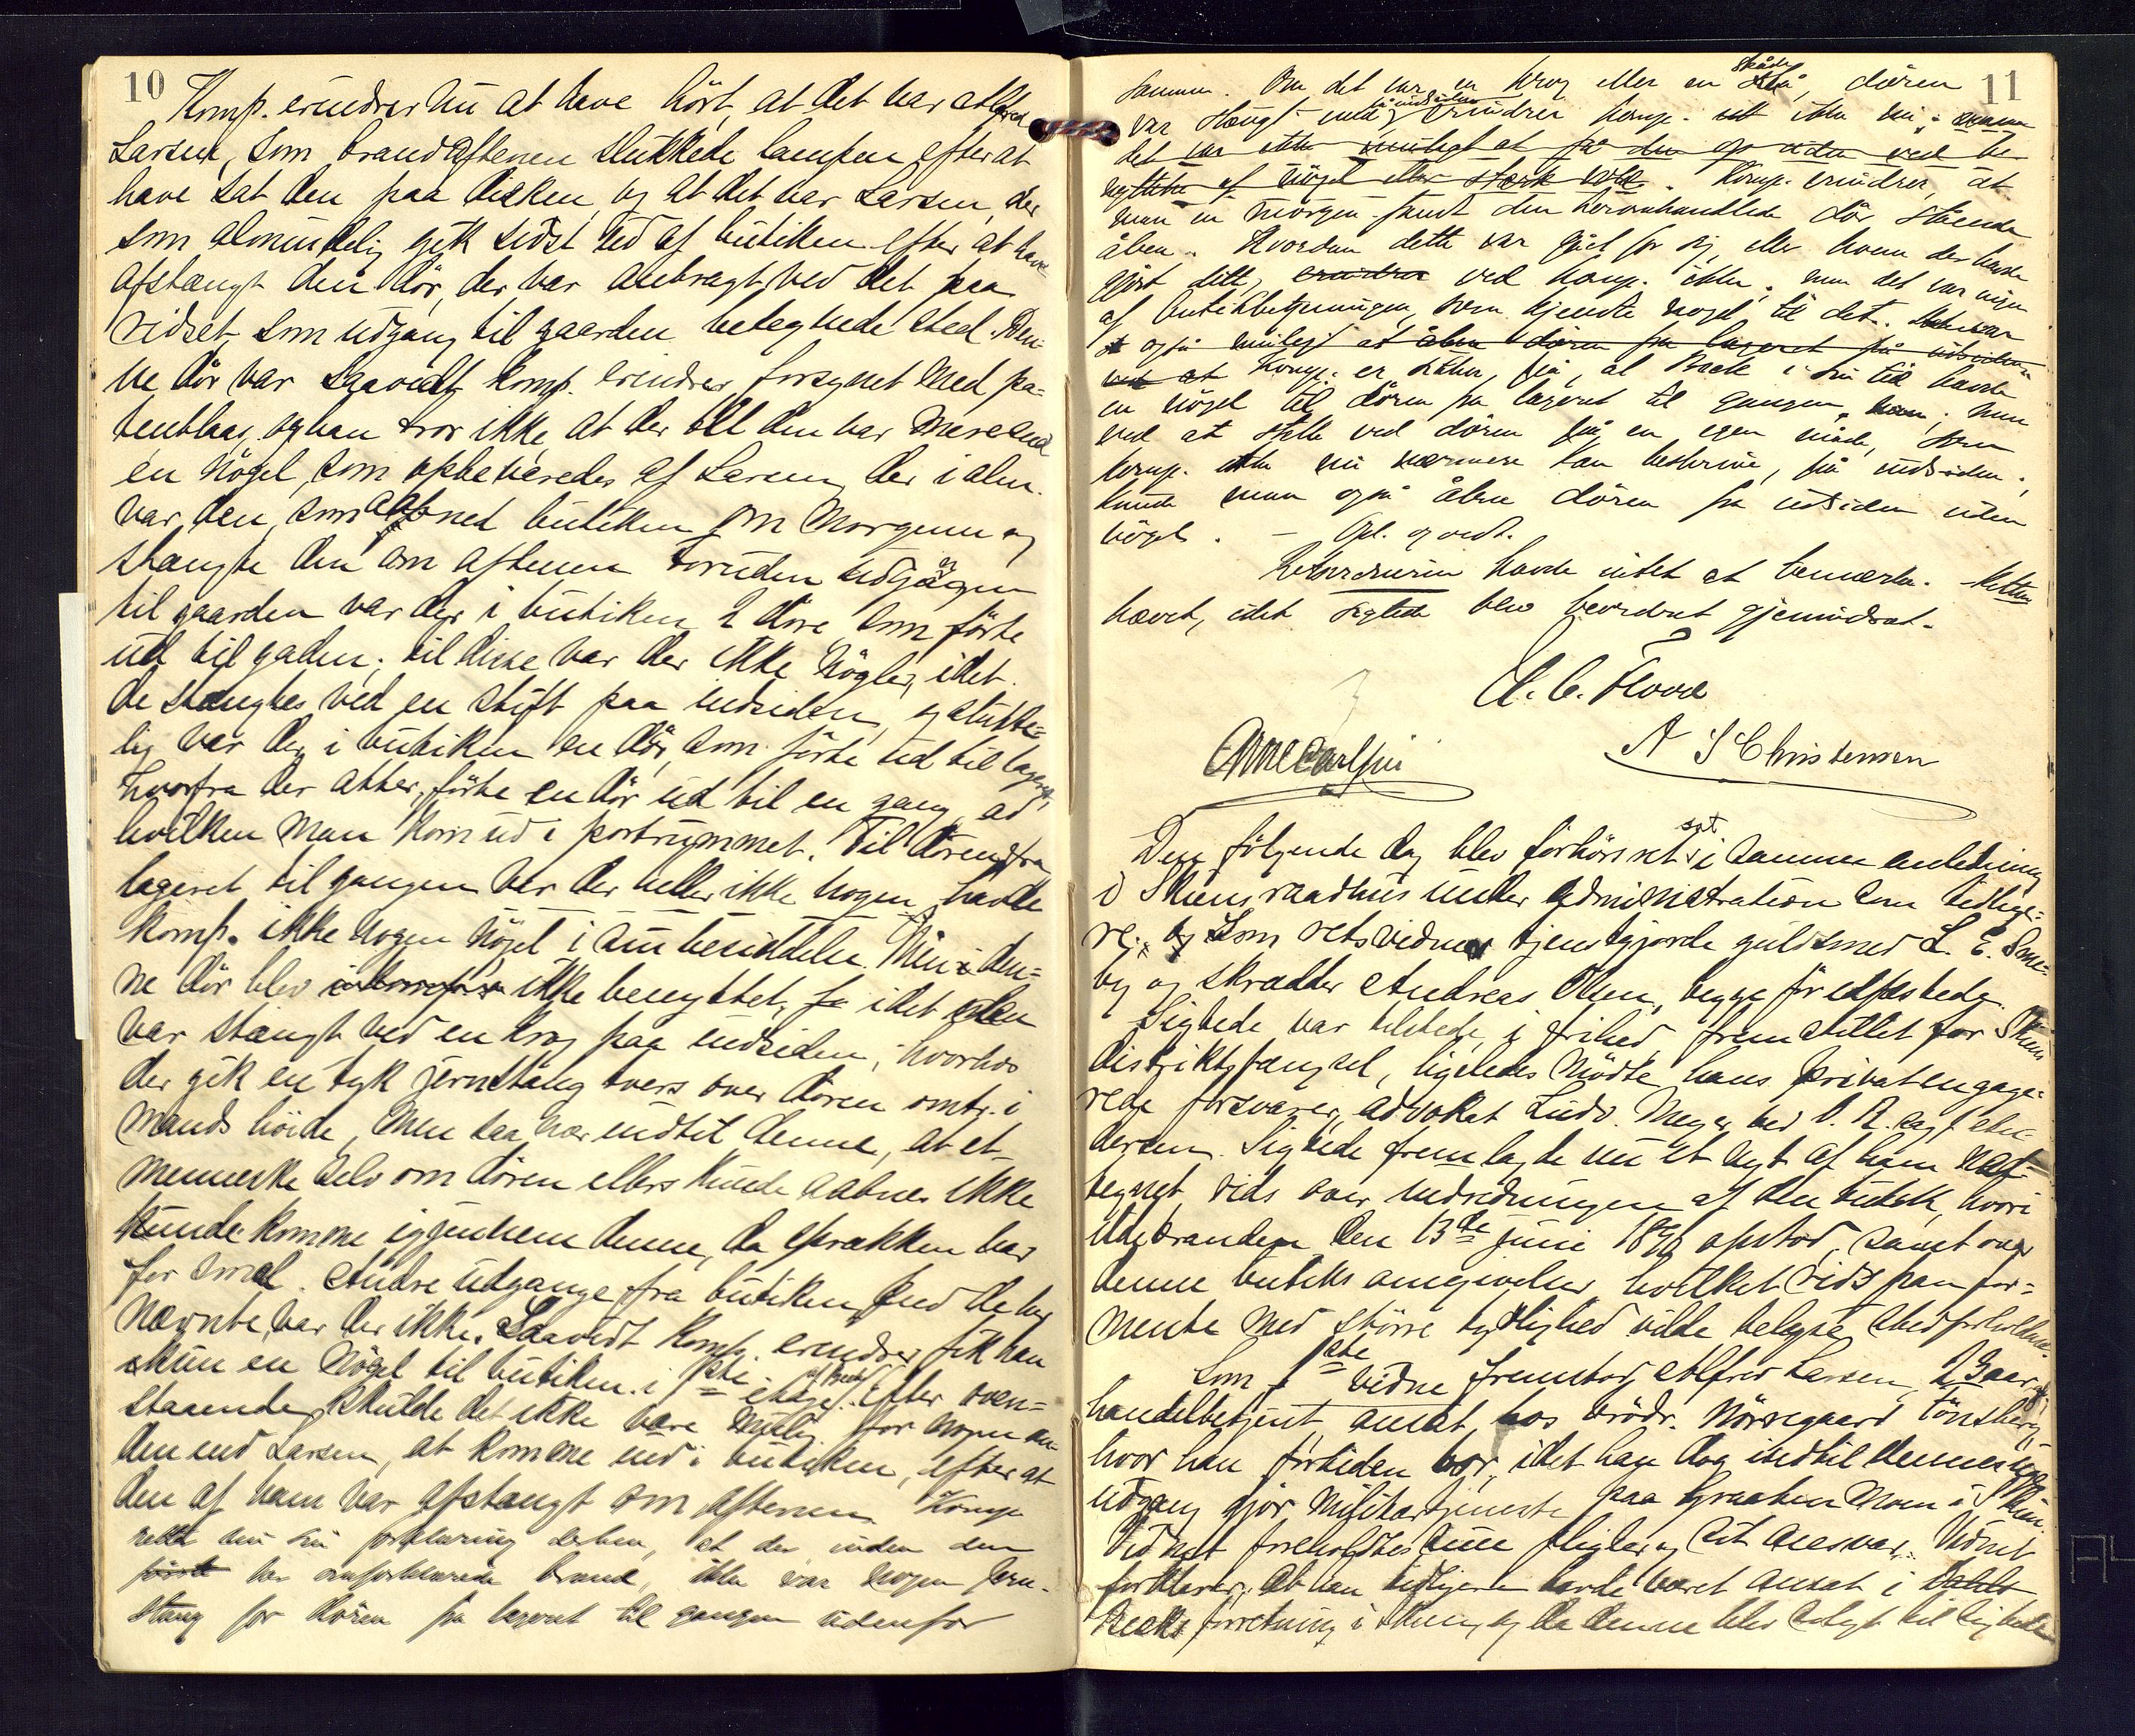 10
Komp. erindrer nu at have hört, at det var Alfred
Larsen, som brandaftenen slukkede lampen efter at
have sat den paa disken, og at det var Larsen, der
som almindelig gik sidst ud af butiken efter at have
afstængt den dör, der var anbragt ved det paa
ridset som udgang til gaarden betegnede sted. Den-
ne dör var saavidt komp. erindrer forsynet med pa-
tentlaas, og han tror ikke, at der til den var mere end
en nögel, som opbevaredes af Larsen, der i alm.
var den, som aabned butiken om morgenen og
stængte den om aftenen. Foruden udgangen
til gaarden var der i butiken 2 döre, som förte
ud til gaden; til disse var der ikke nögler, idet
de stængtes ved en skift paa indsiden, og slutte-
lig var der i butiken en dör, som förte ud til lageret,
hvorfra der atter förte en dör ud til en gang, ad
hvilken man kom ud i portrummet. Til dören fra
lageret til gangen var der heller ikke nogen, havde
komp. ikke nogen nögel i sin besiddelse. Men den-
ne dör blev ikke benyttet, idet den
var stængt ved en krog paa indsiden, hvorhos
der gik en tyk jernstang tvers over dören omtr. i
mands höide, men saa nær indtil denne, at et
menneske selv om dören ellers kunde aabnes ikke
kunde komme igjennem denne, da sprækken var
for smal. Andre udgange fra butiken end de her
nævnte, var der ikke. Saavidt komp. erindrer fik han
kun en nögel til butiken i 1ste etage af Beck. Efter oven-
staaende skulde det ikke være mulig for nogen an-
den end Larsen, at komme ind i butiken, efter at
den af ham var afstængt om aftenen. Komp.
retter nu sin forklaring derhen, at der inden den
först her omforklarede brand, ikke var nogen jern-
stang for dören fra lageret til gangen udenfor
11
samme. Om det var en krog eller en skåde, dören
var stængt med på indsiden erindrer komp. ikke nu;
det var ikke muligt at få den op uden ved be-
nyttelse af nögel eller stærk vold. Komp. erindrer, at
man en morgen fandt den heromhandlede dör stående
åben. Hvordan dette var gået for sig, eller hvem der havde
gjort dette, erindrer ved komp. ikke; men det var ingen
af butikbetjeningen, som kjendte noget til det. Det var
også muligt at åbne dören fra lageret på udsiden
ved at Komp. er sikker på, at Beck i sin tid havde
en nögel til dören fra lageret til gangen; men
ved at stelle ved dören på en egen måde, som
komp. ikke nu nærmere kan beskrive, på indsiden,
kunde man også åbne dören fra udsiden uden
nögel. – Opl. og vedt.
Forsvareren havde intet at bemærke. Retten
hævet, idet sigtede blev beordret gjenindsat.
E. C. Flood
Arne Carlsen
A S Christensen
Den fölgende dag blev forhörsret sat i samme anledning
i Skiens raadhus under administration som tidlige-
re. Som retsvidner tjenstgjorde guldsmed L. E. Sme-
by og skrædder Andreas Olsen, begge för edfæstede.
Sigtede var tilstede i frihed, fremstillet for Skiens
distriktsfængsel, ligeledes mödte hans privat engage-
rede forsvarer, advokat Ludv. Meyer ved O. R. sagf. An-
dersen. Sigtede fremlagde nu et nyt af ham
tegnet rids over indredningen af den butik, hvori
ildebranden den 13de juni 1896 opstod, samt over
denne butiks omgivelser, hvilket rids han for-
mente med större tydelighed vilde belyse stedforholdene.
Som 1ste vidne fremstod Alfred Larsen, 23 aar gl.,
handelbetjent, ansat hos brödr. Nörregaard Tönsberg,
hvor han fortiden bor, idet han dog indtil denne
udgang gjör militærtjeneste paa Graaten Moen i Skien.
Vidnet foreholdtes sine pligter og sit ansvar. Vidnet
forklarer: At han tidligere havde været ansat i
Becks forretning i Skien, og da denne blev solgt til sigtede